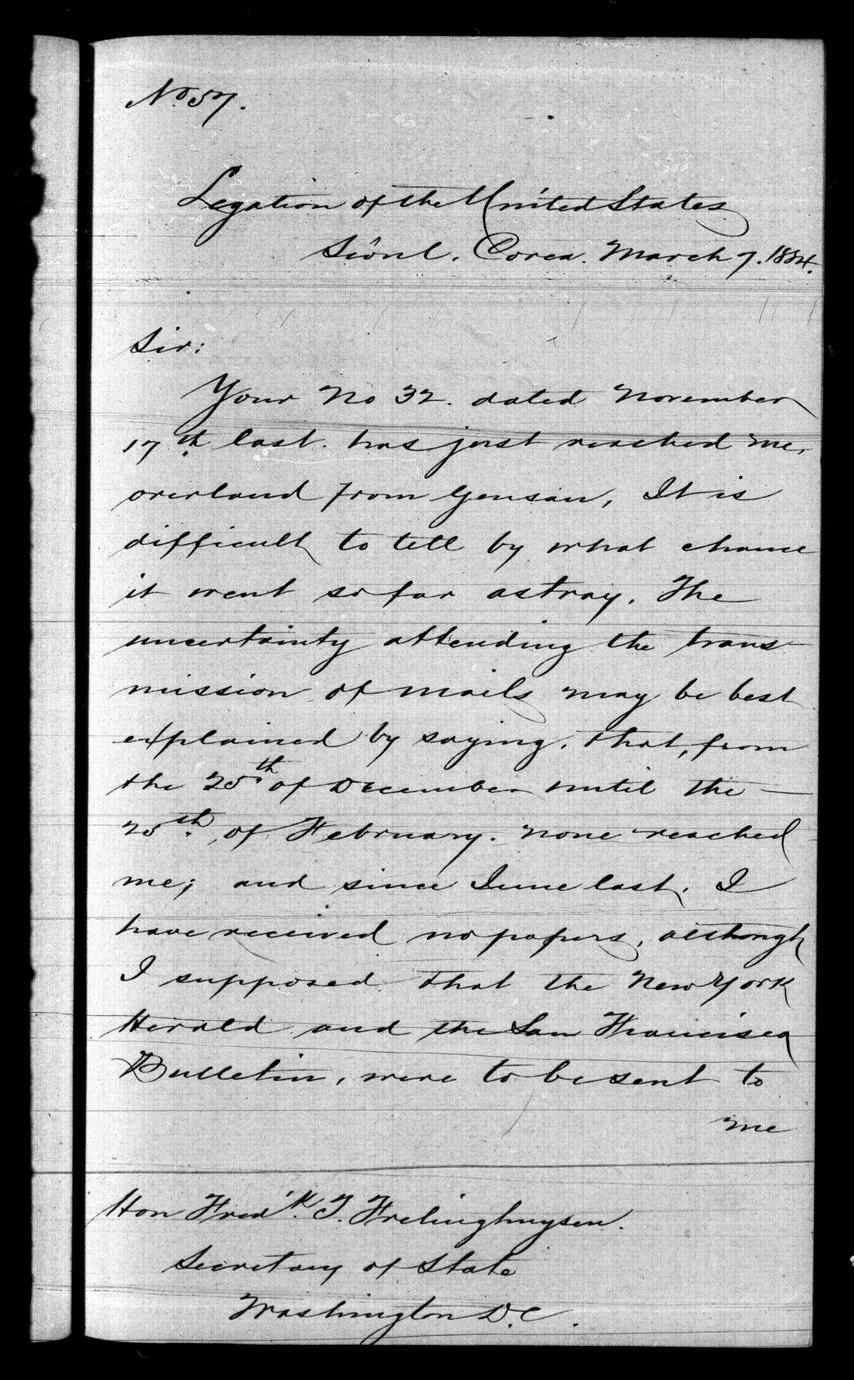 No 57.
Legation of the United States
Sëoul, Corea. March 7. 1884.
Sir:
Your No 32. dated November
17th last. has just reached me,
overland from Gensan, It is
difficult to tell by what chance
it went so far astray. The
uncertainty attending the trans-
mission of mails may be best
explained by saying, that, from
the 25th of December until the
25th of February. none reached
me; and since June last, I
have received no papers, although
I supposed that the New York
Herald and the San Francisco
Bulletin, were to be sent to
me
Hon Fred'k. T. Frelinghuysen.
Secretary of State
Washington D.C.